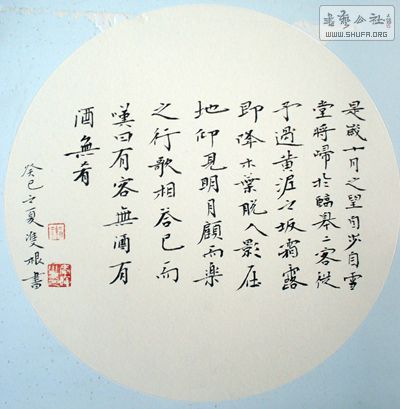 書藝公社
WWW.SHUFA.ORG
是歲十月之望自步自雪
堂將歸於臨皋二客從
予過黃泥之坂霜露
即降木葉脫人影在
地仰見明月顧而樂
之行歌相答已而
嘆曰有客無酒有
酒無肴
癸巳之夏雙根書